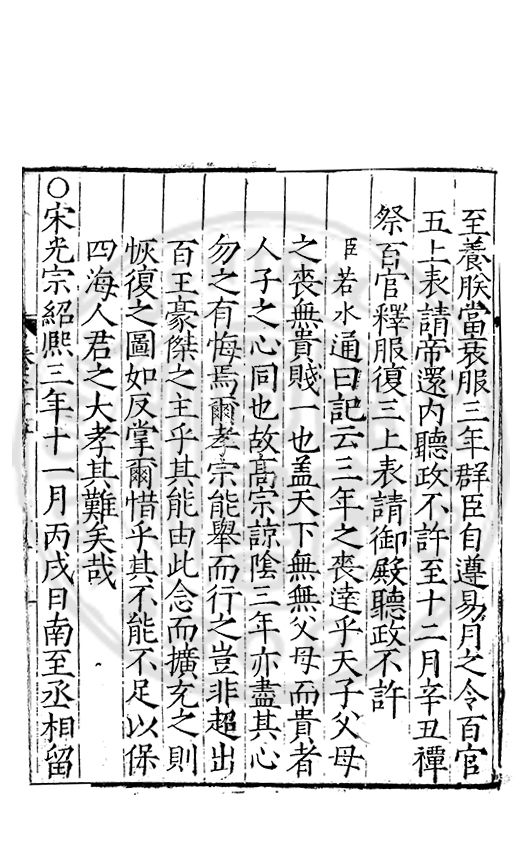 至養朕當衰服三年群臣自遵易月之令百官
五上表請帝還内聽政不許至十二月辛丑禫
祭百官釋服復三上表請御殿聽政不許
臣若水通曰記云三年之喪達乎天子父母
之喪無貴賤一也盖天下無無父母而貴者
人子之心同也故髙宗諒陰三年亦盡其心
勿之有悔焉爾孝宗能舉而行之豈非超出
百王豪傑之主乎其能由此念而擴充之則
恢復之圖如反掌爾惜乎其不能不足以保
四海人君之大孝其難矣哉
○宋光宗紹熙三年十一月丙戌日南至丞相留